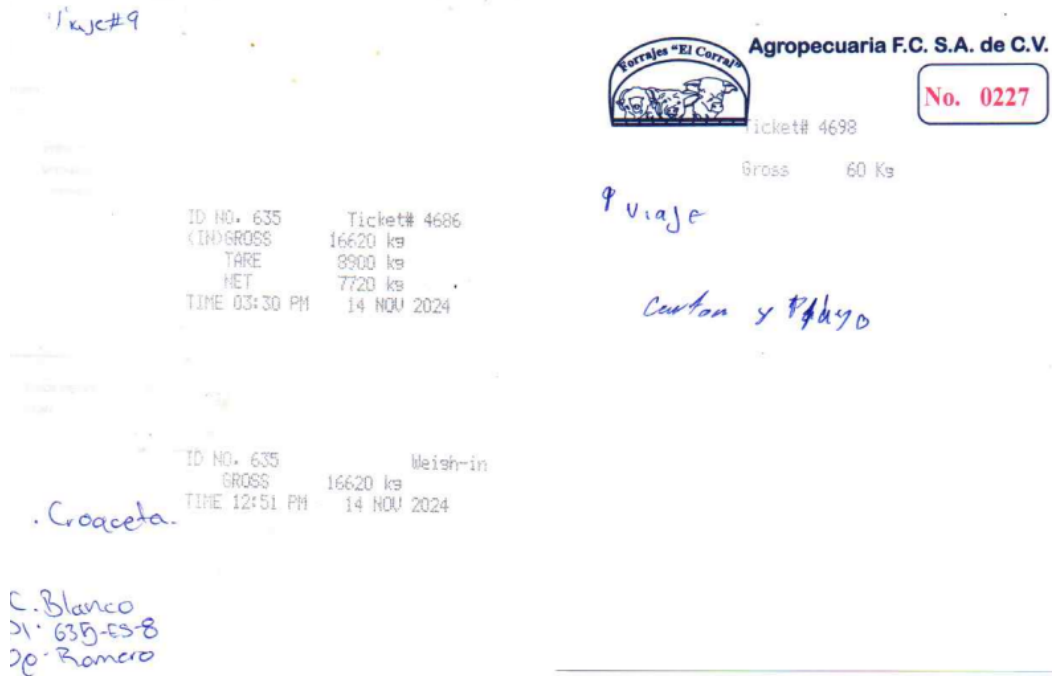 Viaje #9
ID NO. 635 Ticket# 4686
(IN)GROSS 16620 kg
TARE 8900 kg
NET 7720 kg
TIME 03:30 PM 14 NOV 2024
ID NO. 635 Weigh-in
GROSS 16620 kg
TIME 12:51 PM 14 NOV 2024
. Croaceta.
C. Blanco
635-ES-8
Romero
Forrajes "El Corral"
Agropecuaria F.C. S.A. de C.V.
No. 0227
Ticket# 4698
Gross 60 Kg
9 viaje
Carton y Playo